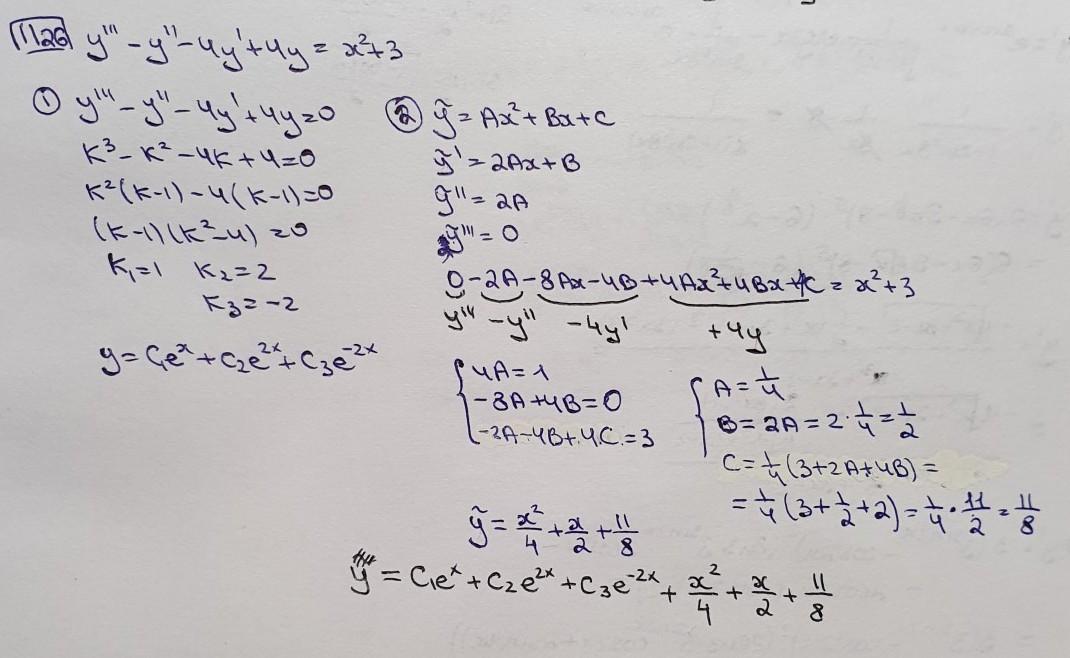 1126 y''' - y'' - 4y' + 4y = x² + 3
① y''' - y'' - 4y' + 4y = 0
k³ - k² - 4k + 4 = 0
k²(k-1) - 4(k-1) = 0
(k-1)(k²-4) = 0
k₁ = 1 k₂ = 2
k₃ = -2
y = C₁eˣ + C₂e²ˣ + C₃e⁻²ˣ
② ỹ = Ax² + Bx + C
ỹ' = 2Ax + B
ỹ'' = 2A
ỹ''' = 0
0 - 2A - 8Ax - 4B + 4Ax² + 4Bx + 4C = x² + 3
y''' - y'' -4y' +4y
{ 4A = 1
-8A + 4B = 0
-2A - 4B + 4C = 3
{ A = 1/4
B = 2A = 2·1/4 = 1/2
C = 1/4(3 + 2A + 4B) =
= 1/4(3 + 1/2 + 2) = 1/4 · 11/2 = 11/8
ỹ = x²/4 + x/2 + 11/8
y = C₁eˣ + C₂e²ˣ + C₃e⁻²ˣ + x²/4 + x/2 + 11/8